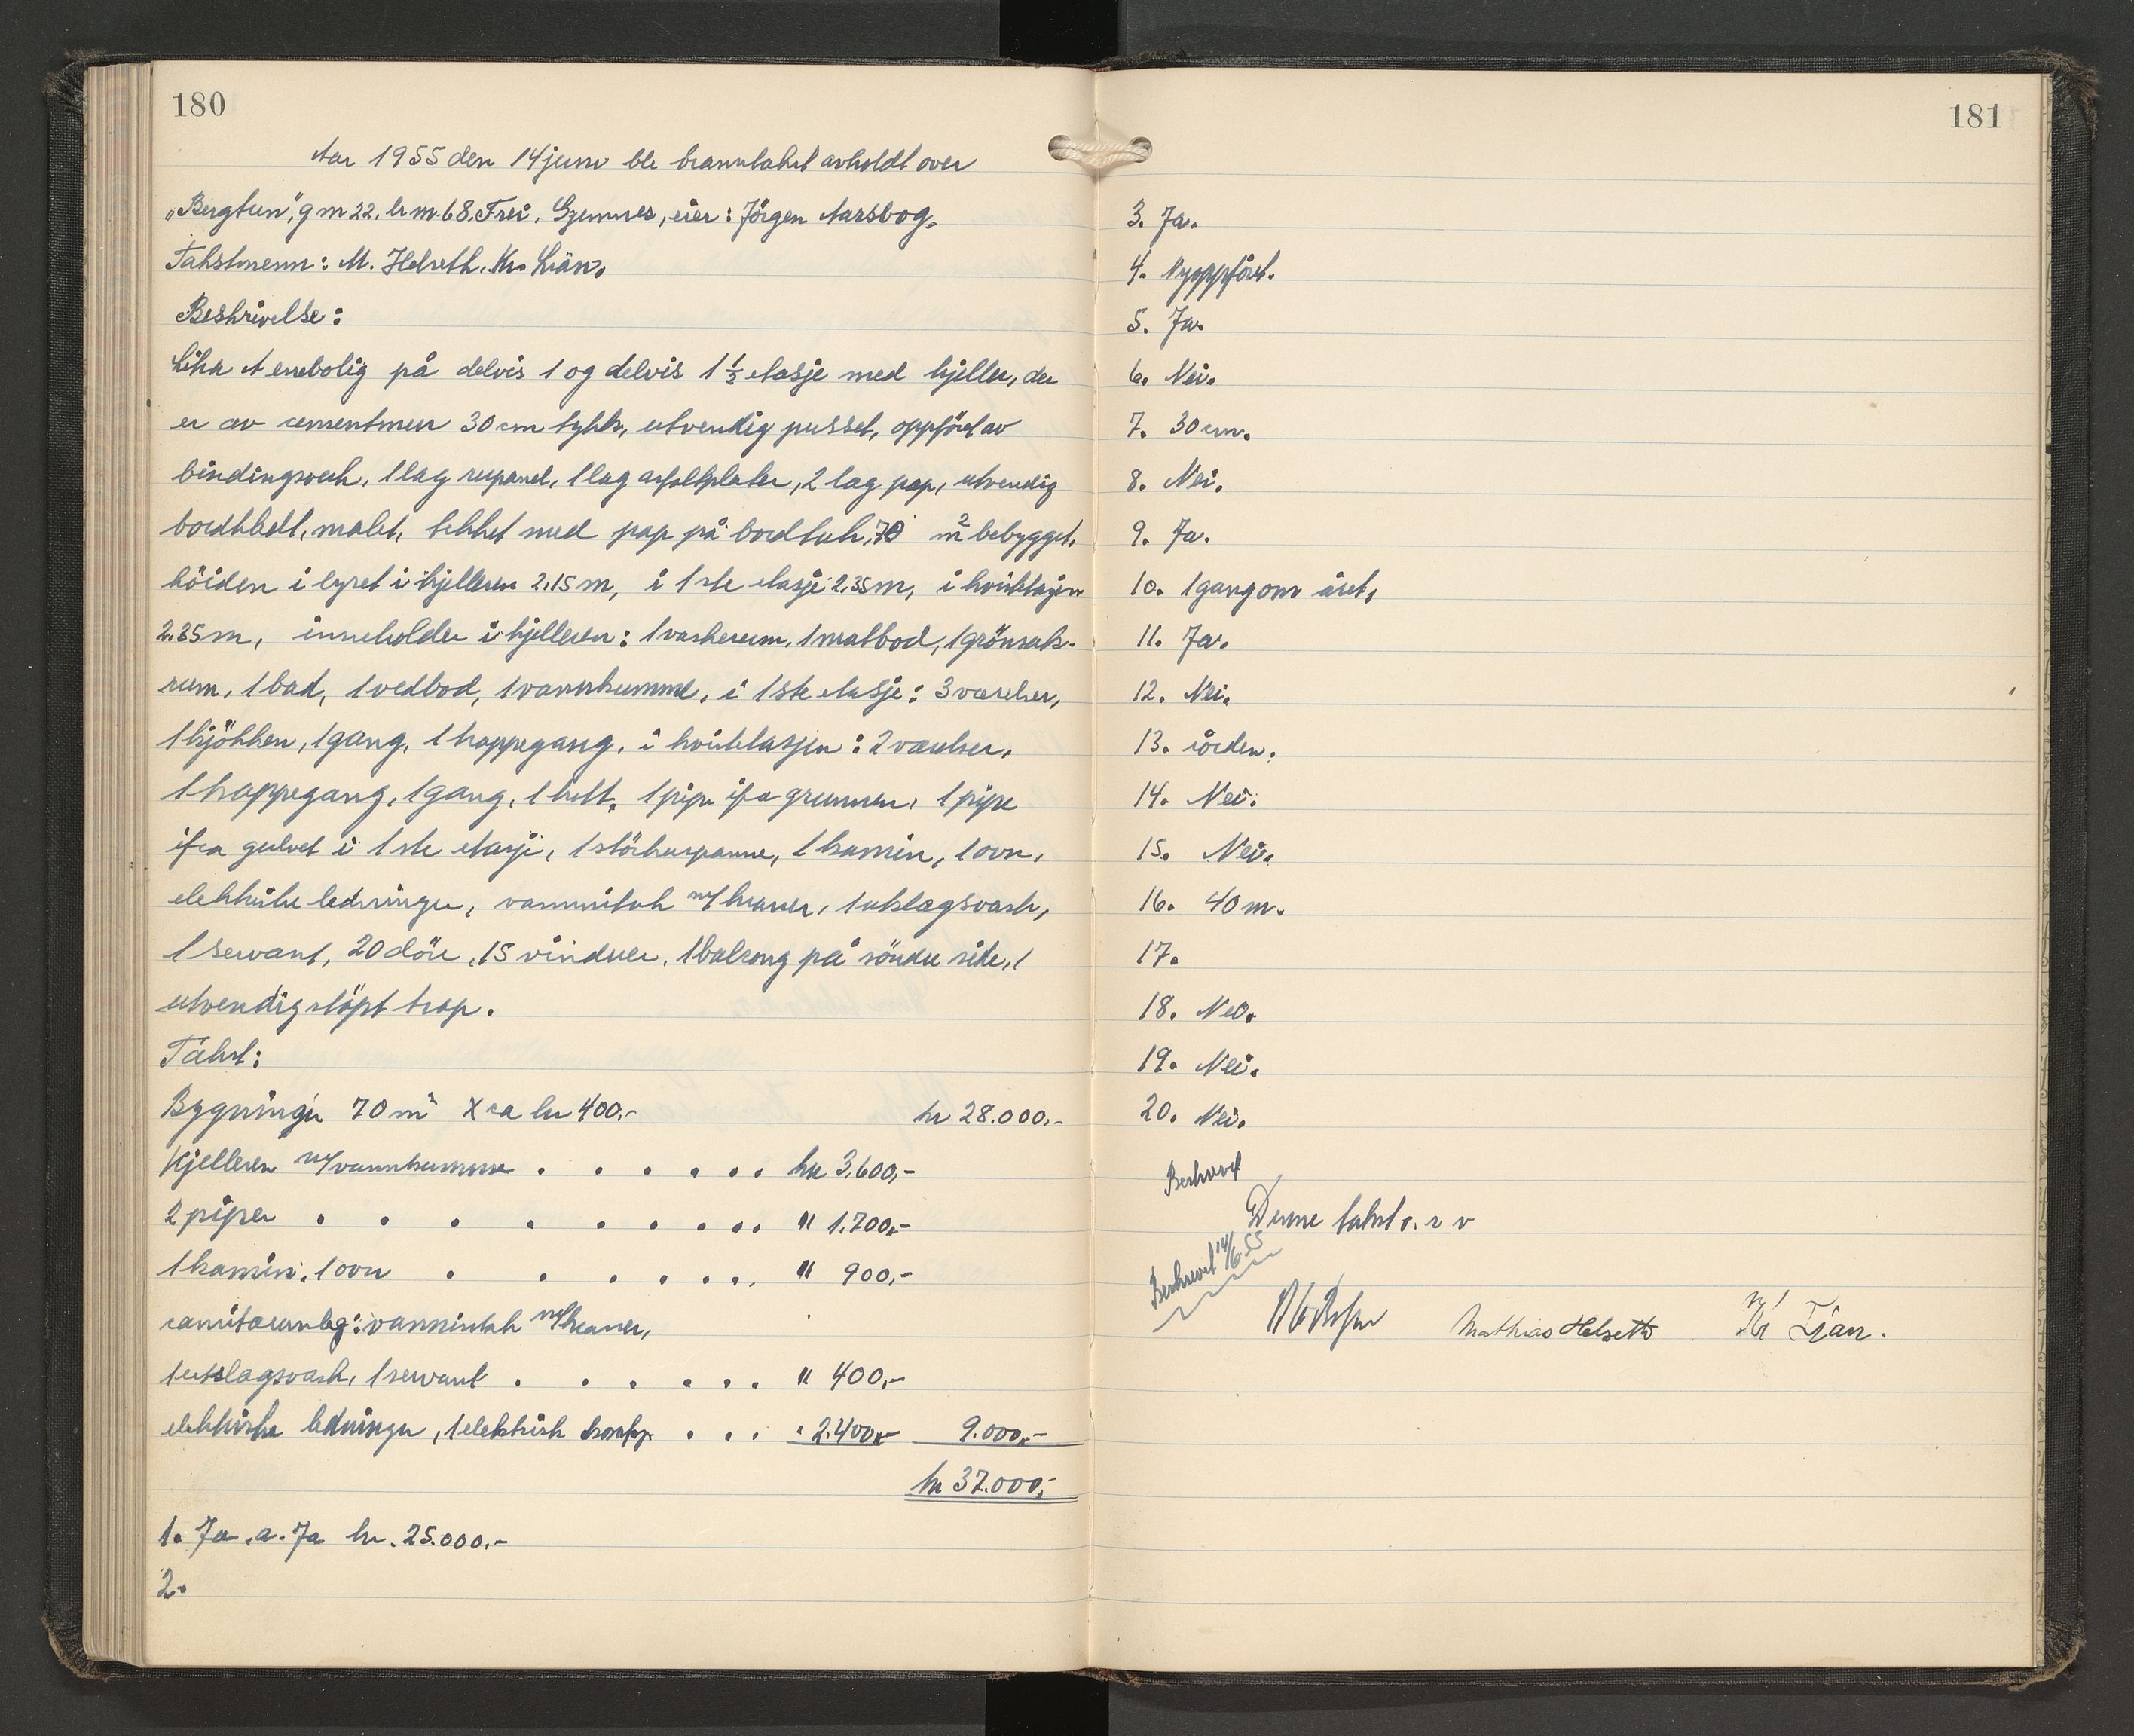 180
Aar 1955 den 14 juni ble branntakst avholdt over
"Bergtun", g nr 22. br nr. 68. Frei. Gjemnes, eier: Jörgen Aarsbog.
Takstmenn: M. Helseth. Kr. Liån.
Beskrivelse:
Litra A enebolig på delvis 1 og delvis 1 1/2 etasje med kjeller, der
er av cementmur 30 cm tykk, utvendig pusset, oppfört av
bindingsverk, 1 lag rupanel, 1 lag asfaltplater, 2 lag pap, utvendig
bordkledt, malet, tekket med pap på bordtak, 70 m² bebygget.
höiden i lyset i kjelleren 2.15 m, i 1ste etasje 2.35 m, i kvistetasjen
2.35 m, inneholder i kjelleren: 1 vaskerum, 1 matbod, 1 grönsaks-
rum, 1 bad, 1 vedbod, 1 vannkumme, i 1ste etasje: 3 værelser,
1 kjökken, 1 gang, 1 trappegang, i kvistetasjen: 2 værelser,
1 trappegang, 1 gang, 1 kott, 1 pipe ifra grunnen, 1 pipe
ifra gulvet i 1ste etasje, 1 störhuspanne, 1 kamin, 1 ovn,
elektriske ledninger, vanninntak m/ kraner, 1 utslagsvask,
1 servant, 20 döre, 15 vinduer, 1 balkong på söndre side, 1
utvendig stöpt trap.
Takst:
Bygningen 70 m² X ca kr 400,- kr 28.000,-
Kjelleren m/ vannkumme . . . . . . kr 3.600,-
2 piper . . . . . . . . . " 1.700,-
1 kamin, 1 ovn . . . . . . . " 900,-
sanitæranleg: vanninntak m/ kraner,
1 utslagsvask, 1 servant . . . . . . " 400,-
elektriske ledninger, 1 elektrisk komfyr . . . " 2.400,- 9.000,-
kr 37.000,-
1. Ja. a. Ja kr. 25.000.-
2.
181
3. Ja.
4. Nyoppfört.
5. Ja.
6. Nei.
7. 30 cm.
8. Nei.
9. Ja.
10. 1 gang om året.
11. Ja.
12. Nei.
13. i orden.
14. Nei.
15. Nei.
16. 40 m.
17.
18. Nei.
19. Nei.
20. Nei.
Denne takst o. s v
Beskrevet 14/6 55
Mathias Helseth Kr Liån.